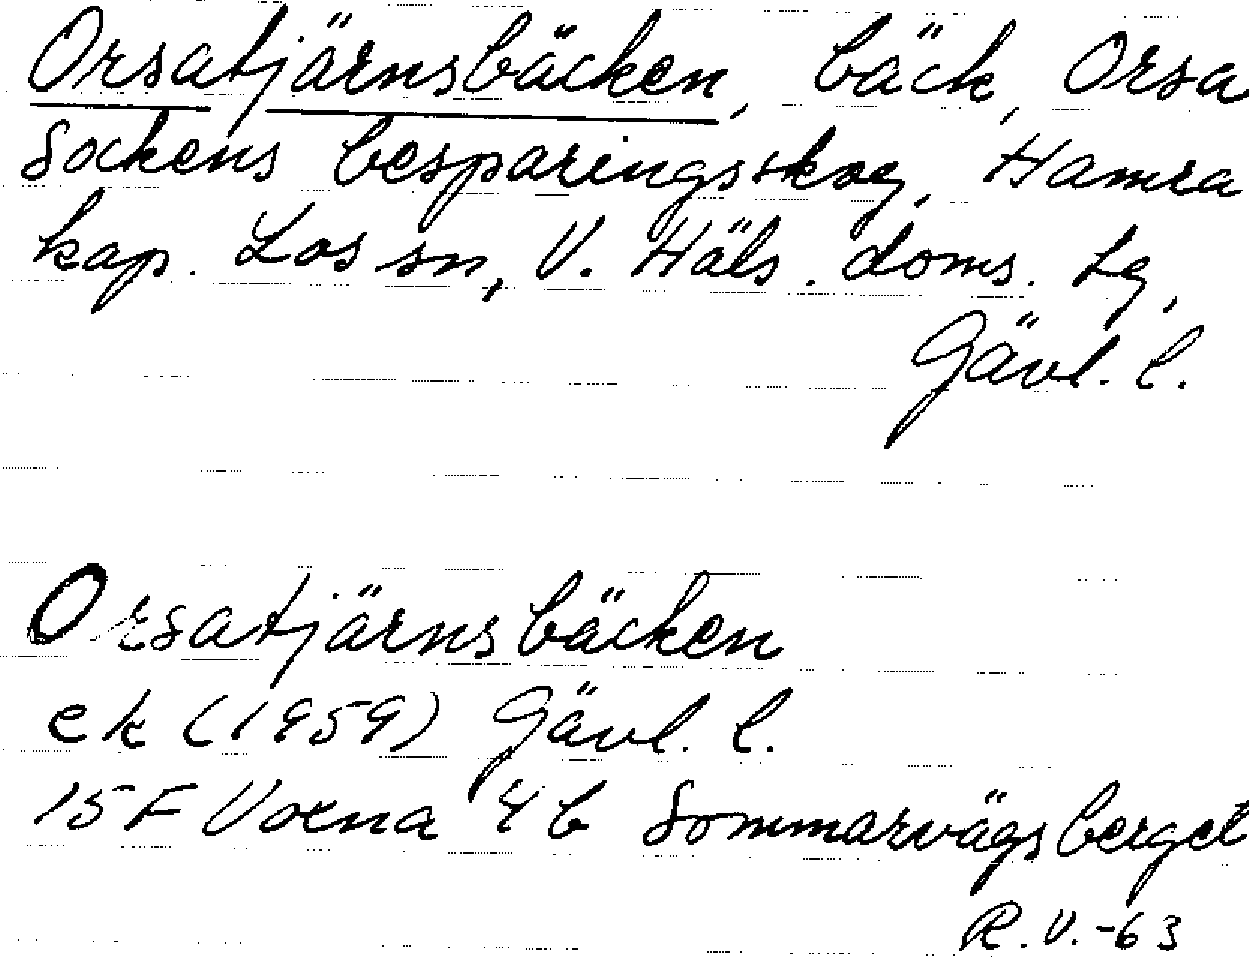 Orsatjärnsbäcken, bäck, Orsa
Sockens besparingsskog, Hamra
kap. Los sn, V. Häls. doms. Lg,
Gävl. l.
Orsatjärnsbäcken
ek (1959) Gävl. l.
15F Voxna 4b Sommarvägsberget
R.V.-63